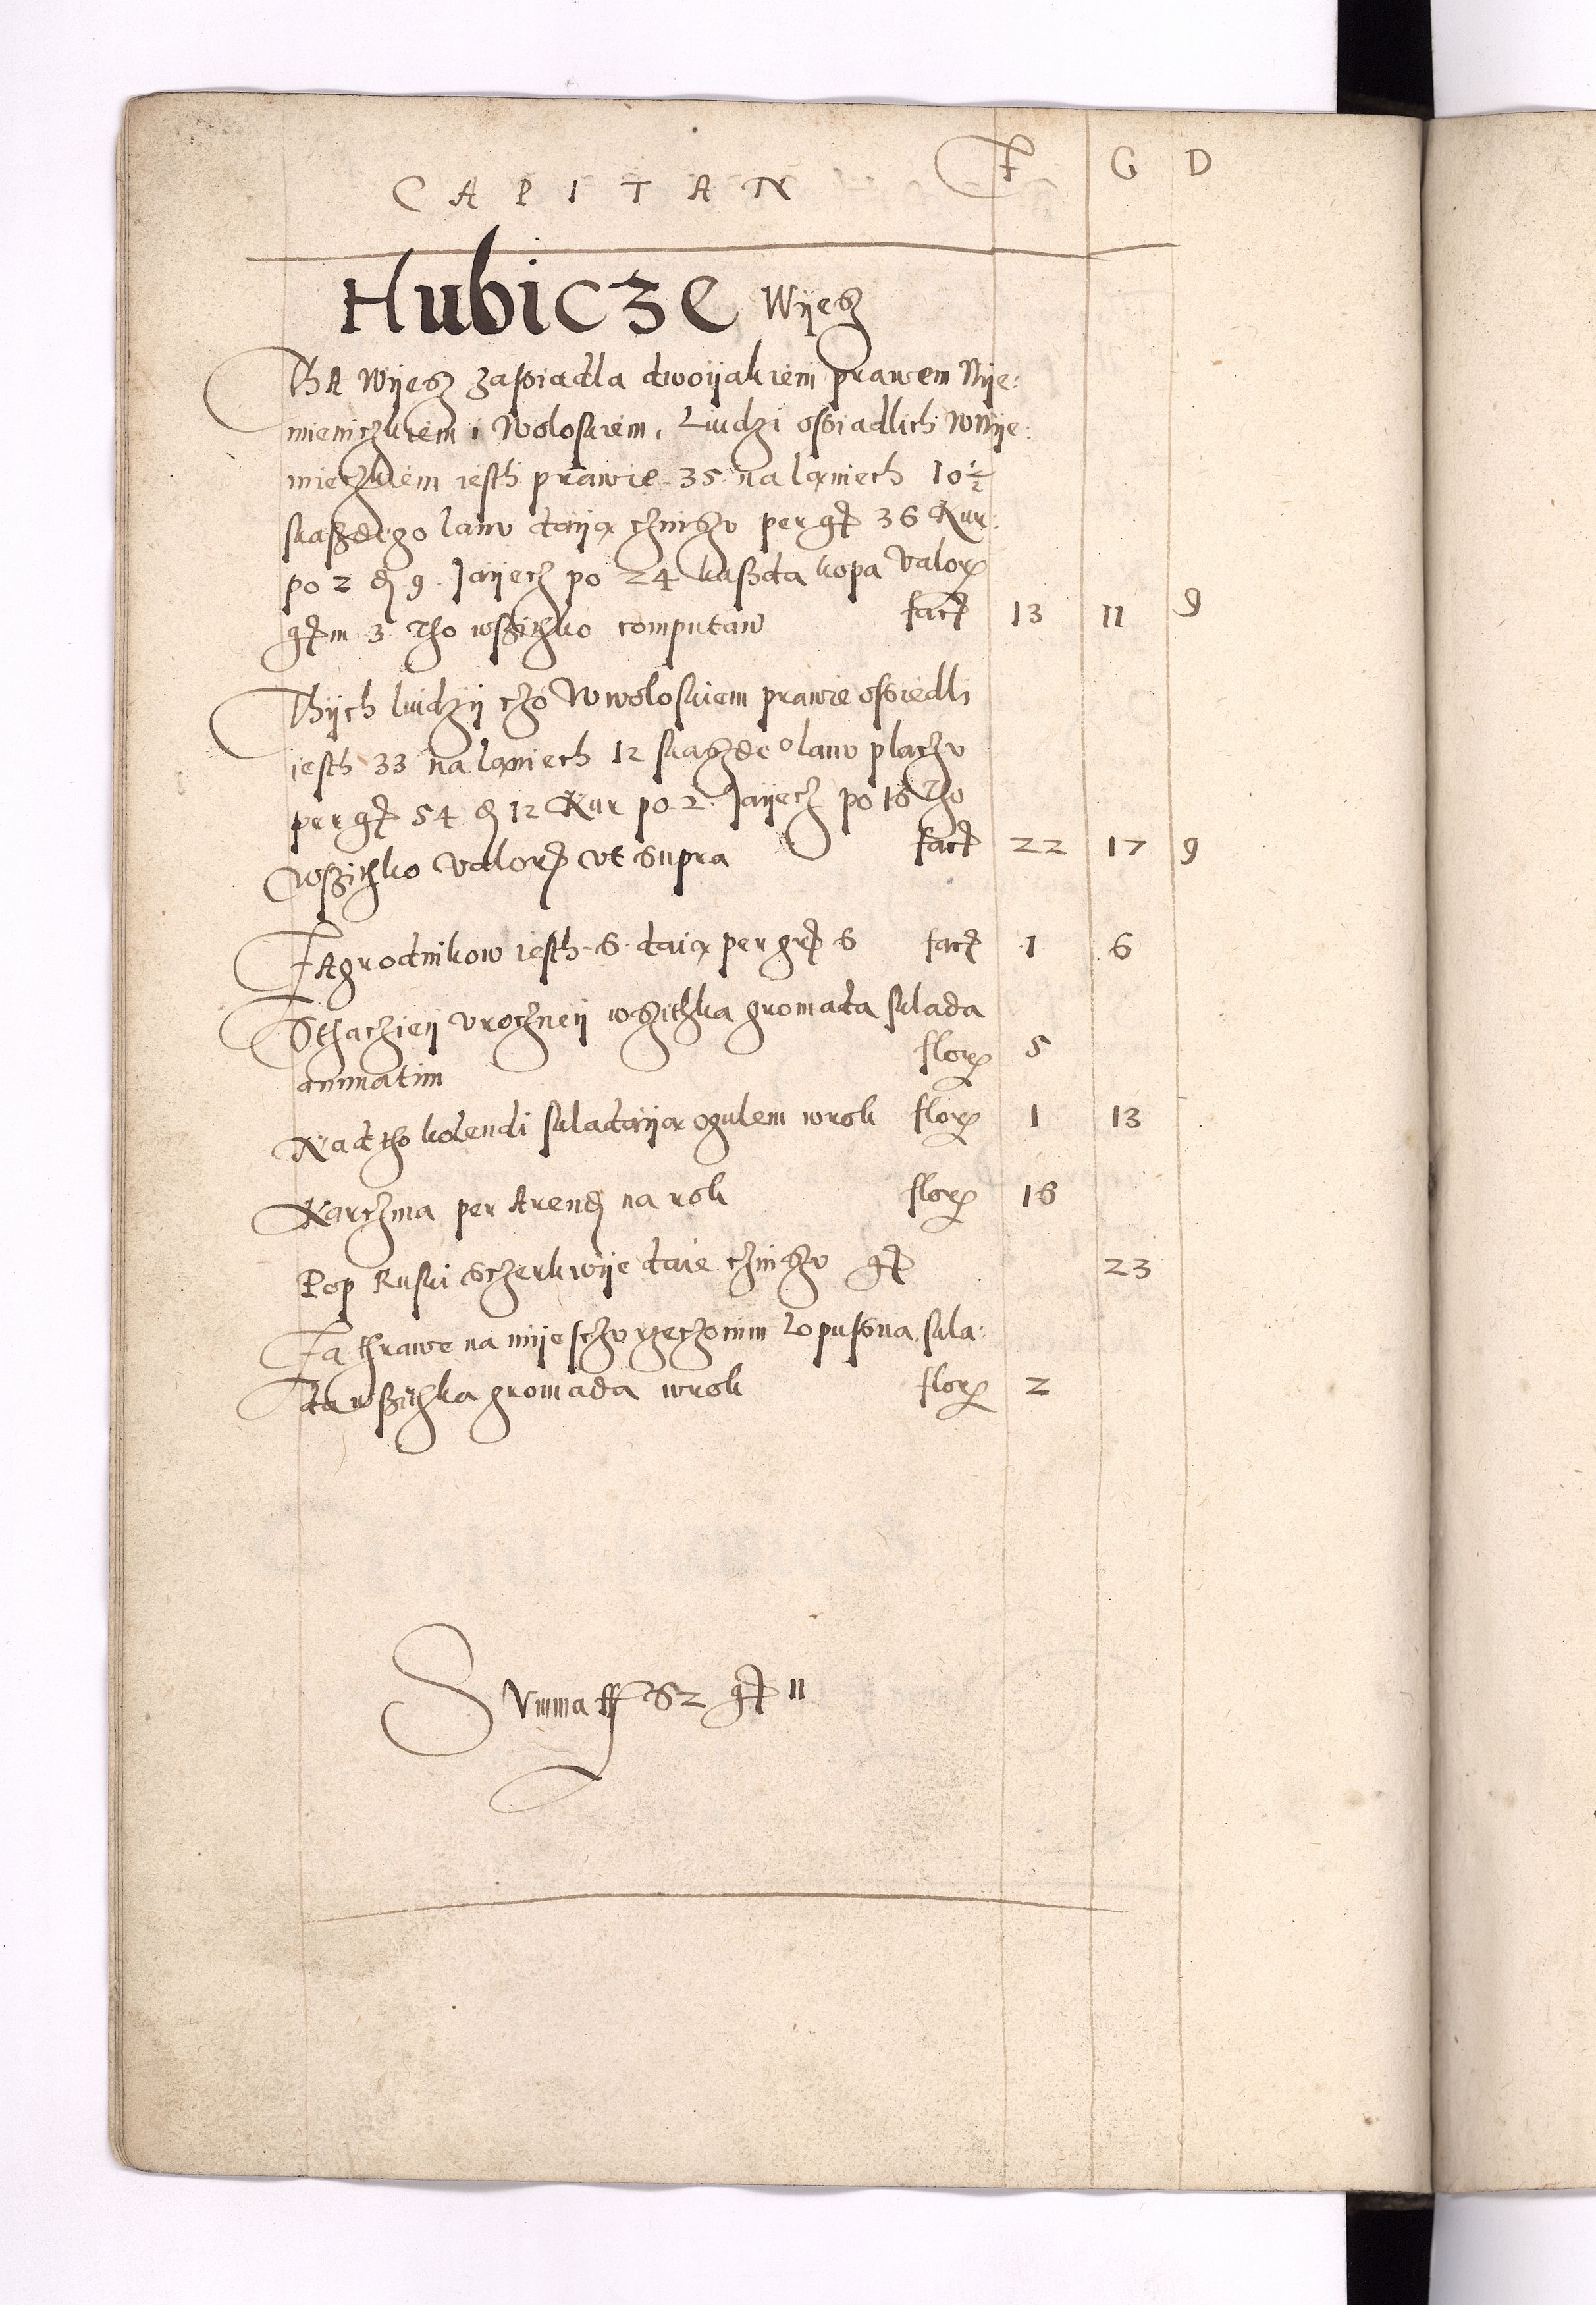 CAPITAN F G D
Hubicze Wijesz
Tha Wijesz zasiadla dwoijakiem prawem Nije:
mieniczkiem i Woloskiem, Liudzi osiadlich w Nije:
mieczkiem iesth prawie 35 na laniech 10 ½
skaszdego lanu daija czinszu per gr 36 Kur:
po 2 d 9. Jaijecz po 24 kaszda kopa valor
grm 3 Tho wszithko computan fact 13 11 9
Thijch liudzij czo w woloskiem prawie osiedli
iesth 33 na laniech 12 skaszdeo lanu placzo
per gr 54 d 12 Kur po 2. Jaijecz po 16 Tho
wszithko valor vt supra fact 22 17 9
Zagrodnikow iesth 6 daia per gr 6 fact 1 6
Sthacziej vroczneij wszithka gromada sklada
annuatim flor 5
Nad tho kolendi skladaija ogulem wrok flor 1 13
Karczma per Arend na rok flor 16
Pop Ruski Sczerkwije daie czinszu gr 23
Za thrawe na mijesczu rzeczonim Lopusna skla:
da wszithka gromada wrok flor 2
Summa ff 62 gr 11